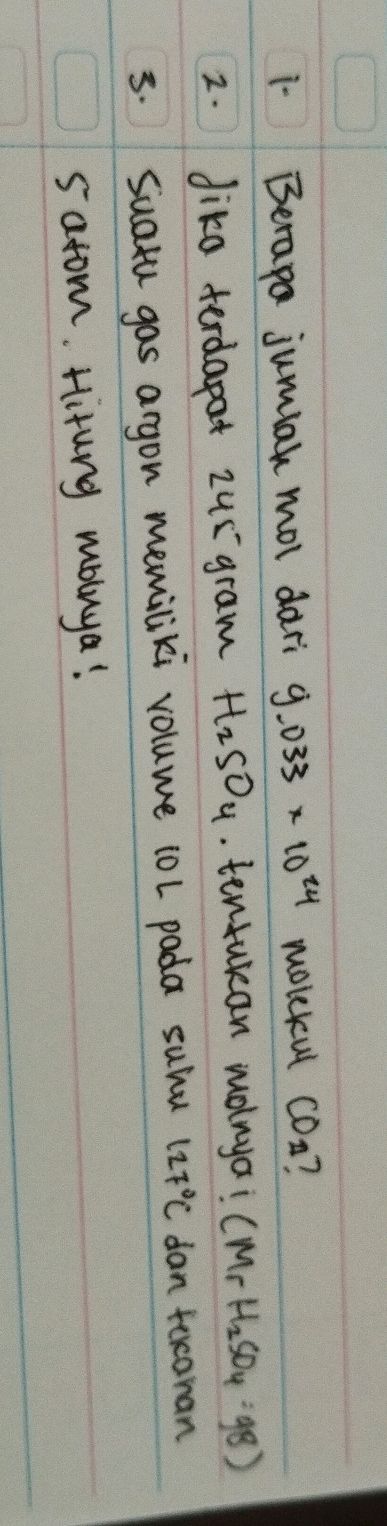 1. Berapa jumlah mol dari 9.033 × 10²⁴ molekul CO₂?
2. Jika terdapat 245 gram H₂SO₄. tentukan molnya! (Mr H₂SO₄ = 98)
3. Suatu gas argon memiliki volume 10 L pada suhu 127°C dan tekanan
5 atom. Hitung molnya!